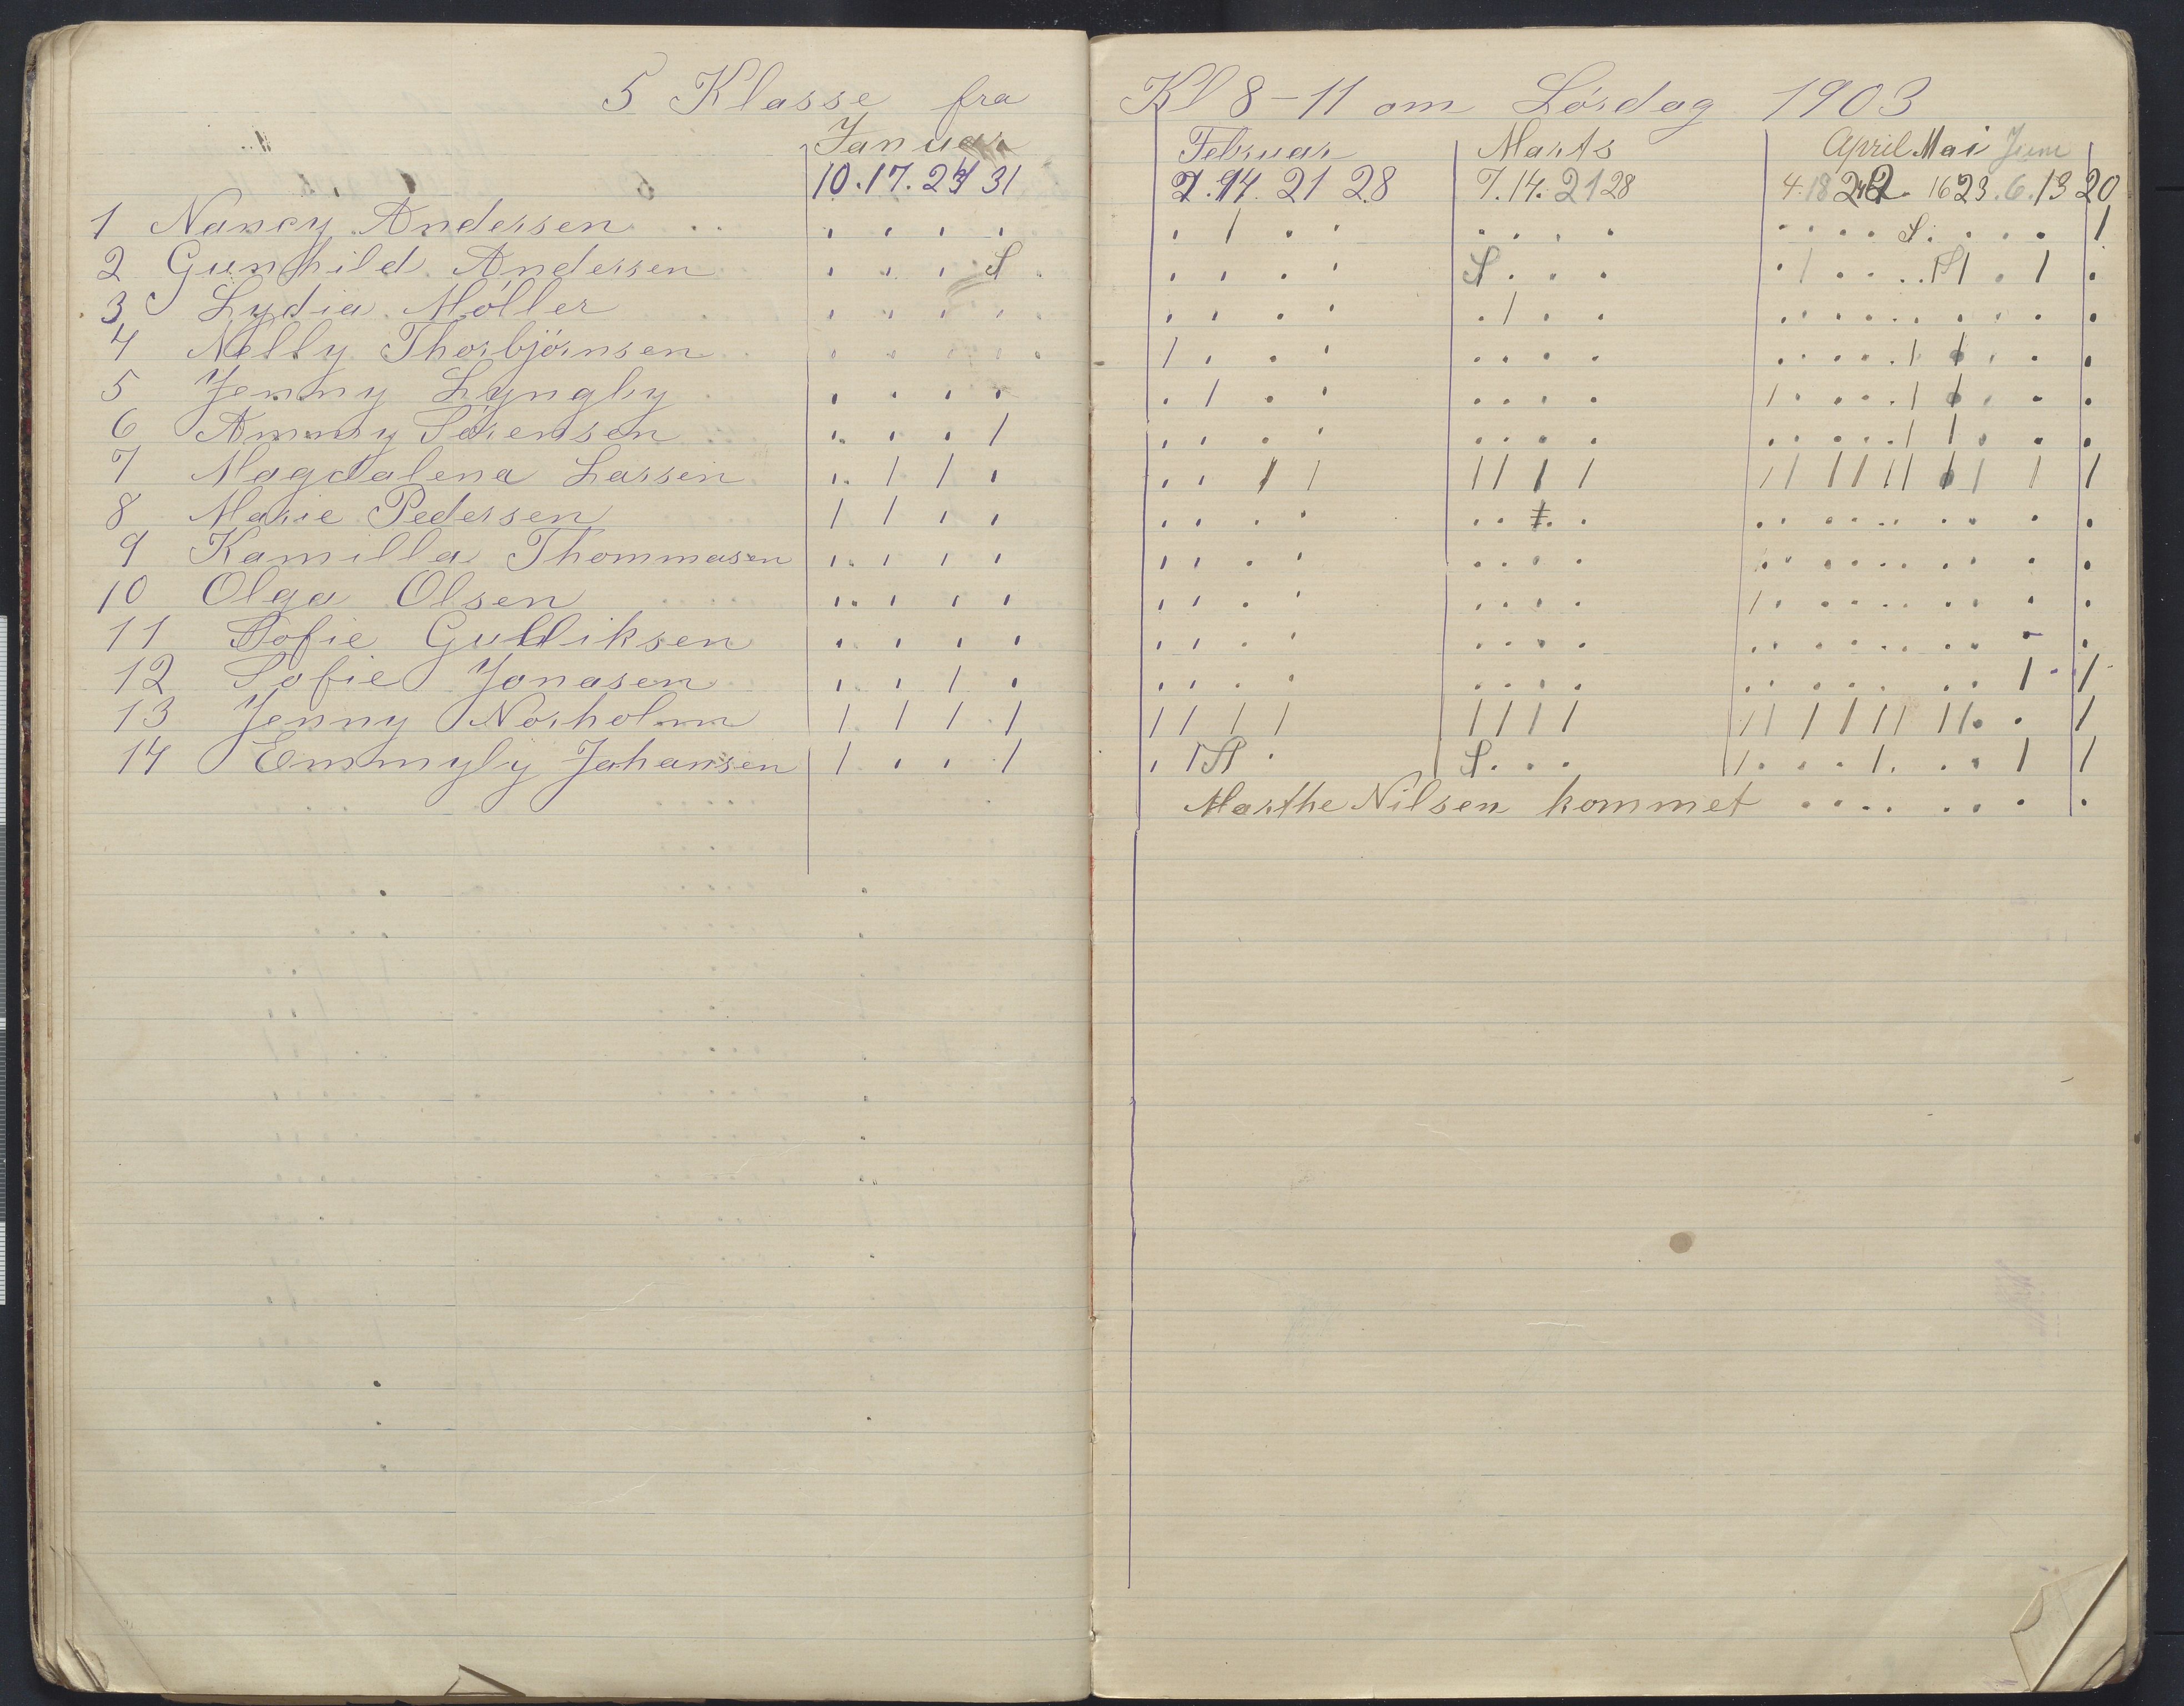 5 Klasse fra Kl 8-11 om Lørdag 1903
Januar Februar Marts April Mai Juni
10. 17. 24 31 7. 14. 21 28 7. 14. 21 28 4. 18 2. 16 23. 6. 13 20
1 Nancy Andersen . . . . . / . . . . . . . . . . S . . . . /
2 Gunhild Andersen . . . S . . . . S . . . . / . . . . S / . / .
3 Lydia Møller . . . . . . . . . / . . . . . . . . . . . .
4 Nelly Thorbjørnsen . . . . / . . . . . . . . . . . . / / . . .
5 Jenny Lyngby . . . . . / . . . . . . / . . . . / / . . .
6 Ammy Sørensen . . . / . . . . . . . . . . . . . / / . . .
7 Magdalena Larsen . / / . . . / / / / / / / / / / / / / / / /
8 Marie Pedersen / / . . . . . . . . ‡ . . . . . . . . . . .
9 Kamilla Thommasen . . . . . . . . . . . . . . . . . . . . . .
10 Olga Olsen . . . . . . . . . . . . / . . . . . . . . .
11 Sofie Gulliksen . . . . . . . . . . . . . . . . . . . . - .
12 Sofie Jonasen . . / . . . . . . . . . . . . . . . . / /
13 Jenny Norholm / / / / / / / / / / / / / / / / / / / / . . /
14 Emmyly Johansen / . . / . / S . S . . . / . . . / . . . / /
Marthe Nilsen kommet . . . . . . . .